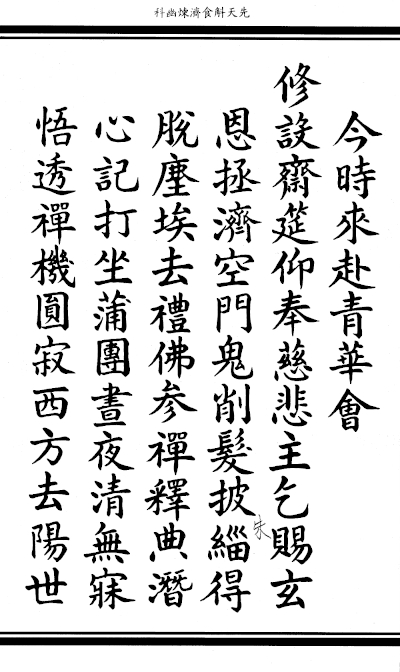 先天斛食濟煉幽科
今時來赴青華會
修設齋筵仰奉慈悲主乞賜玄
恩拯濟空門鬼削髮披緇得
朱
脫塵埃去禮佛参禪釋典潛
心記打坐蒲團晝夜清無寐
悟透禪機圓寂西方去陽世